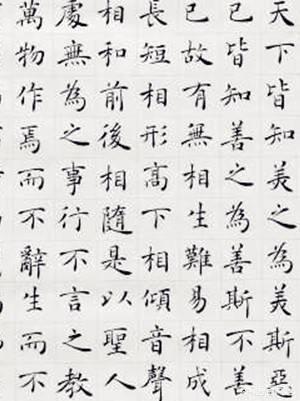 天下皆知美之為美斯惡
已皆知善之為善斯不善
已故有無相生難易相成
長短相形高下相傾音聲
相和前後相隨是以聖人
處無為之事行不言之教
萬物作焉而不辭生而不